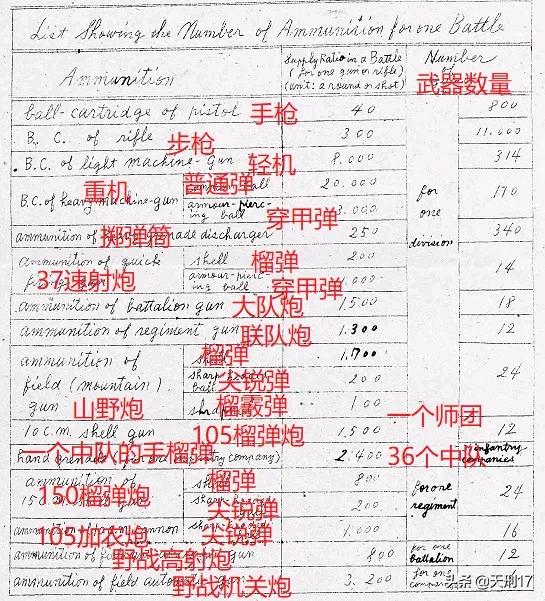 List Showing the Number of Ammunition for one Battle
Ammunition
Supply Ratio in a Battle
(for one gun or rifle)
(unit: a round or shot)
Number
武器数量
ball-cartridge of pistol 手枪 40 800
B. C. of rifle 步枪 300 11.000
B.C. of light machine-gun 轻机 8.000 314
重机 普通弹 ball 20.000
B.C. of heavy machine-gun armour-pierc-ing ball 穿甲弹 3.000 for one division 170
ammunition of 掷弹筒 discharger 250 340
ammunition of quick 37速射炮 shell 榴弹 200 14
armour-pierc-ing ball 穿甲弹 1.000
ammunition of battalion gun 大队炮 1.500 18
ammunition of regiment gun 联队炮 1.300 12
ammunition of field (mountain) gun 山野炮 榴弹 1.700 24
ball 尖锐弹 200
榴霰弹 100
一个师团
10 c.m. shell gun 105榴弹炮 1.500 12
hand 一个中队的手榴弹 company) 2.400 36个中队 infantry companies
ammunition of 150榴弹炮 榴弹 800 for one regiment 24
尖锐弹 200
105加农炮 cannon 尖锐弹 1.000 16
ammunition of 野战高射炮 gun 800 for one battalion 12
ammunition of field 野战机关炮 3.200 for one
头条 @天刑17